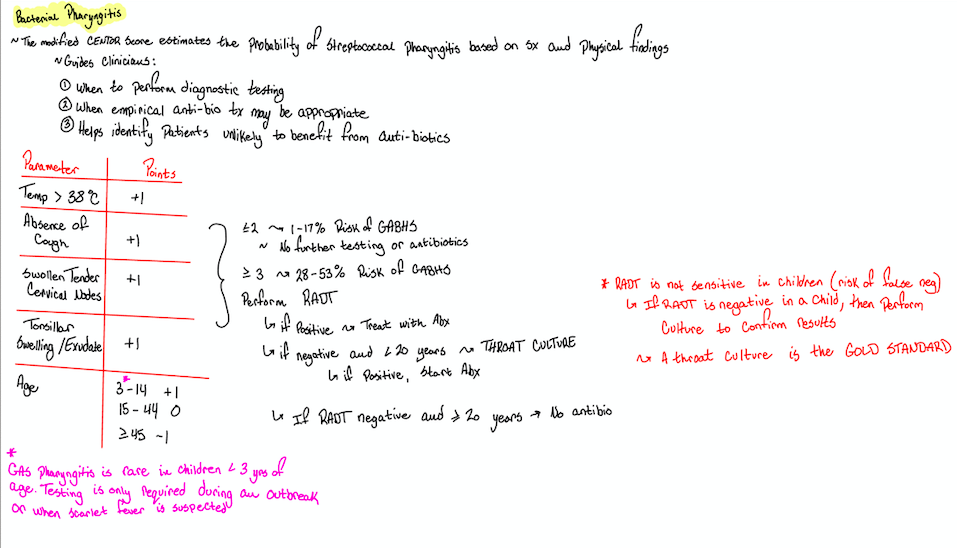 Bacterial Pharyngitis
~ The modified CENTOR Score estimates the probability of streptococcal pharyngitis based on sx and physical findings
~ Guides Clinicians:
① When to perform diagnostic testing
② When empirical anti-bio tx may be appropriate
③ Helps identify patients unlikely to benefit from anti-biotics
Parameter Points
Temp > 38°C +1
Absence of
Cough +1
Swollen Tender
Cervical Nodes +1
Tonsillar
Swelling / Exudate +1
Age 3*-14 +1
15-44 0
≥45 -1
≤2 ~> 1-17% Risk of GABHS
~ No further testing or antibiotics
≥ 3 ~> 28-53% Risk of GABHS
Perform RADT
↳ if Positive ~> Treat with Abx
↳ if negative and < 20 years ~> THROAT CULTURE
↳ if Positive, Start Abx
↳ If RADT negative and ≥ 20 years → No antibio
* RADT is not sensitive in children (risk of false neg)
↳ If RADT is negative in a Child, then Perform
Culture to Confirm Results
~> A throat culture is the GOLD STANDARD
*
GAS Pharyngitis is rare in children < 3 yrs of
age. Testing is only required during an outbreak
or when scarlet fever is suspected